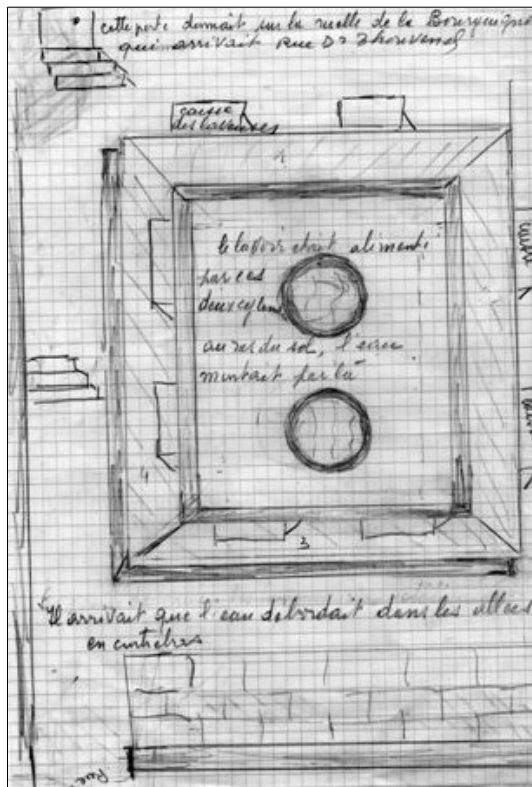 cette porte donnait sur la ruelle de la
qui arrivait Rue Dr Thouvenel
caisse
des laveuses
1
le lavoir était alimenté
par ces
deux
au ras du sol, l'eau
montait par là
4
3
Il arrivait que l'eau débordait dans les allées
en
Rue